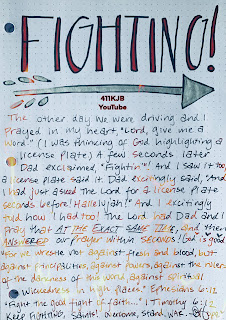 FIGHTING!
411KJB
YouTube
The other day we were driving and I
prayed in my heart, "Lord, give me a
Word." (I was thinking of God highlighting a
license plate) A few seconds later
Dad exclaimed, "Fightin'"! And I saw it too,
a license plate said it. Dad excitingly said, "And
I had just asked the Lord for a license plate
seconds before! Hallelujah!" And I excitingly
told how I had too! The Lord had Dad and I
pray that AT THE EXACT SAME TIME, and then
ANSWERED our prayer within SECONDS! God is good
"For we wrestle not against flesh and blood, but
against principalities, against powers, against the rulers
of the darkness of this world, against spiritual
wickedness in high places." Ephesians 6:12
"Fight the good fight of faith..." 1 Timothy 6:12
Keep FIGHTING, Saints! Overcome, Stand, WAR.